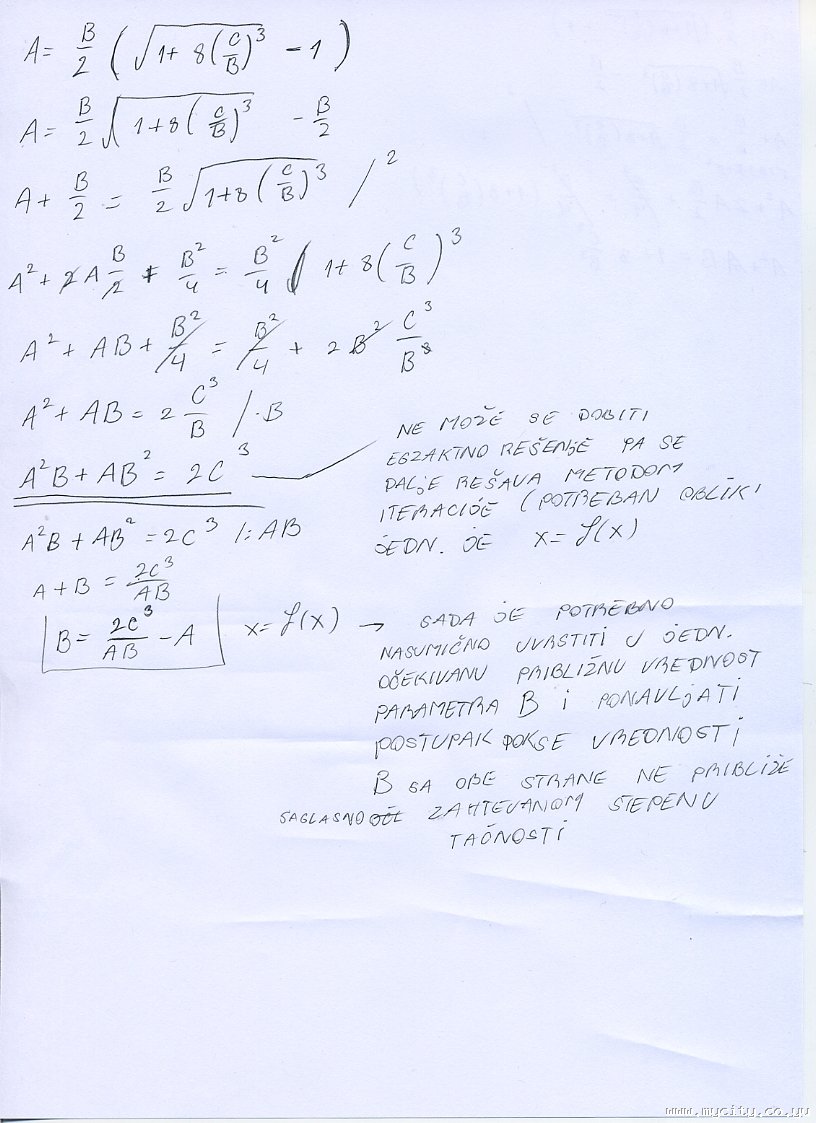 A = B/2 ( √1+8(C/B)³ - 1 )
A = B/2 √(1+8(C/B)³ - B/2
A + B/2 = B/2 √1+8(C/B)³ /²
A² + 2A B/2 + B²/4 = B²/4 ( 1+8(C/B)³
A² + AB + B²/4 = B²/4 + 2B² C³/B³
A² + AB = 2 C³/B /·B
A²B + AB² = 2C³
NE MOŽE SE DOBITI
EGZAKTNO REŠENJE PA SE
DALJE REŠAVA METODOM
ITERACIJE (POTREBAN OBLIK
JEDN. JE X = f(x)
A²B + AB² = 2C³ /: AB
A + B = 2C³/AB
B = 2C³/AB - A
X = f(x) → SADA JE POTREBNO
NASUMIČNO UVRSTITI U JEDN.
OČEKIVANU PRIBLIŽNU VREDNOST
PARAMETRA B I PONAVLJATI
POSTUPAK DOK SE VREDNOSTI
B SA OBE STRANE NE PRIBLIŽE
SAGLASNO ZAHTEVANOM STEPENU
TAČNOSTI
www.mycity.co.yu